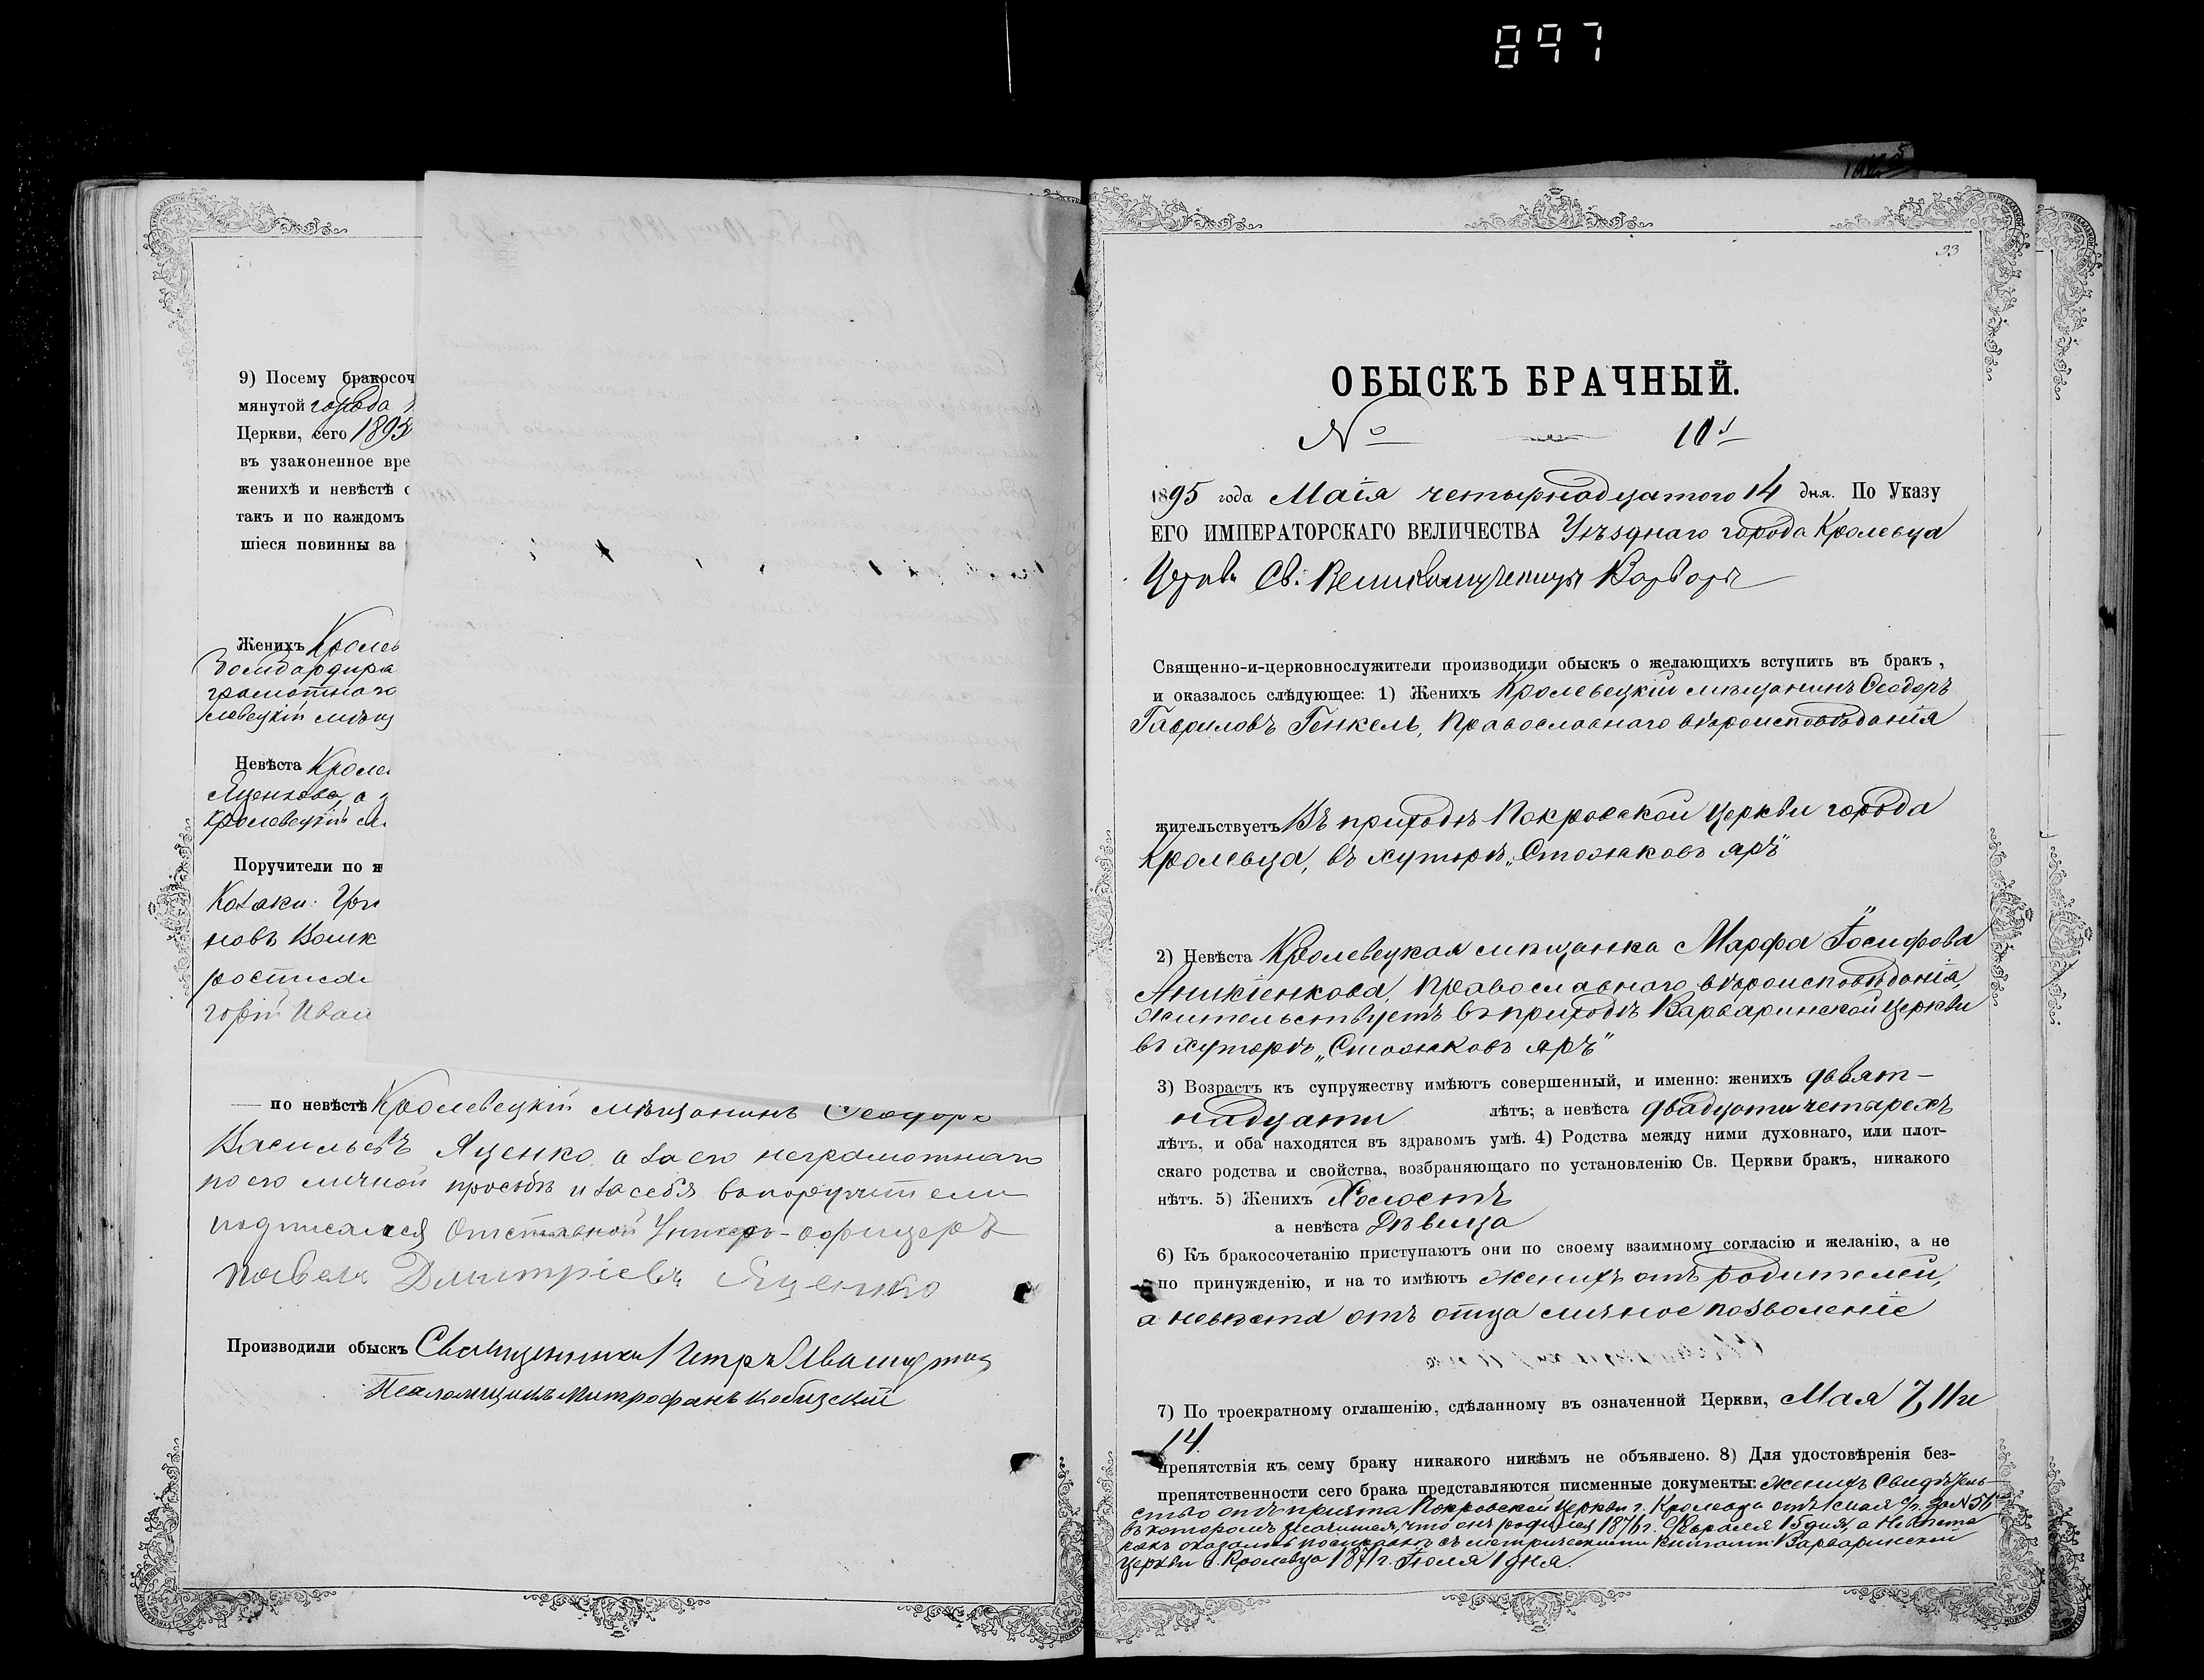 897
9) Посему бракосоч
мянутой города
Церкви, сего 1895
въ узаконенное вре
женихѣ и невѣстѣ
такъ и по каждомъ
шіеся повинны за
Женихъ Кролев
Бомбардира
грамотнаго
левецкій мѣщ
Невѣста Кроле
Яценкова, а
Кролевецкій
Поручители по ж
Козаки: Гри
новъ
роспис
горій Иван
по невѣстѣ Кролевецкій мѣщанинъ Ѳеодоръ
Васильевъ Яценко, а за его неграмотнаго
по его личной просьбѣ и за себя в поручители
подписался Отставной Унтеръ-офицеръ
Павелъ Дмитріевъ Яценко
Производили обыскъ Священникъ Петръ
Псаломщикъ Митрофанъ
33
ОБЫСКЪ БРАЧНЫЙ.
№ 10й
1895 года Маія четырнадцатого 14 дня. По Указу
ЕГО ИМПЕРАТОРСКАГО ВЕЛИЧЕСТВА Уѣзднаго города Кролевца
Церкви Св: Великомученицы Варвары
Священно-и-церковнослужители производили обыскъ о желающихъ вступить въ бракъ,
и оказалось слѣдующее: 1) Женихъ Кролевецкій мѣщанинъ Ѳеодоръ
Гавриловъ Генкель, Православнаго вѣроисповѣданія
жительствуетъ Въ приходѣ Покровской церкви города
Кролевца, въ хуторѣ „Стожковъ яръ“
2) Невѣста Кролевецкая мѣщанка Марфа Іосифова
Аникіенкова, Православнаго вѣроисповѣданія,
жительствуетъ въ приходѣ Варваринской церкви
въ хуторѣ „Стожковъ яръ“
3) Возрастъ къ супружеству имѣютъ совершенный, и именно: женихъ девят-
надцати лѣтъ; а невѣста двадцати четырехъ
лѣтъ, и оба находятся въ здравомъ умѣ. 4) Родства между ними духовнаго, или плот-
скаго родства и свойства, возбраняющаго по установленію Св. Церкви бракъ, никакого
нѣтъ. 5) Женихъ Холостъ
а невѣста Дѣвица
6) Къ бракосочетанію приступаютъ они по своему взаимному согласію и желанію, а не
по принужденію, и на то имѣютъ женихъ отъ родителей,
а невѣста отъ отца личное позволеніе
7) По троекратному оглашенію, сдѣланному въ означенной Церкви, Мая 7, 11 и
14
препятствія къ сему браку никакого никѣмъ не объявлено. 8) Для удостовѣренія без-
препятственности сего брака представляются писменные документы: женихъ Свидѣтель-
ство отъ причта Покровской церкви г. Кролевца отъ 1 мая с/г. за № 56
въ которомъ значится, что онъ родился 1876 г. Февраля 15 дня, а Невѣста
какъ оказалось по справкѣ съ метрическими книгами Варваринской
церкви г. Кролевца 1871 г. Іюля 1 дня.